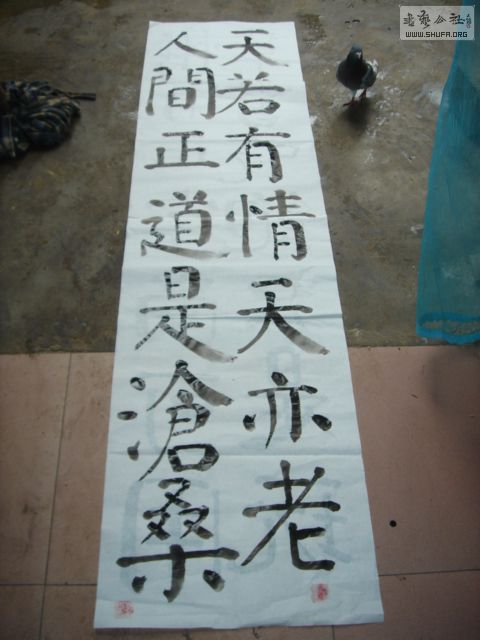 天若有情天亦老
人間正道是滄桑
书艺公社
WWW.SHUFA.ORG